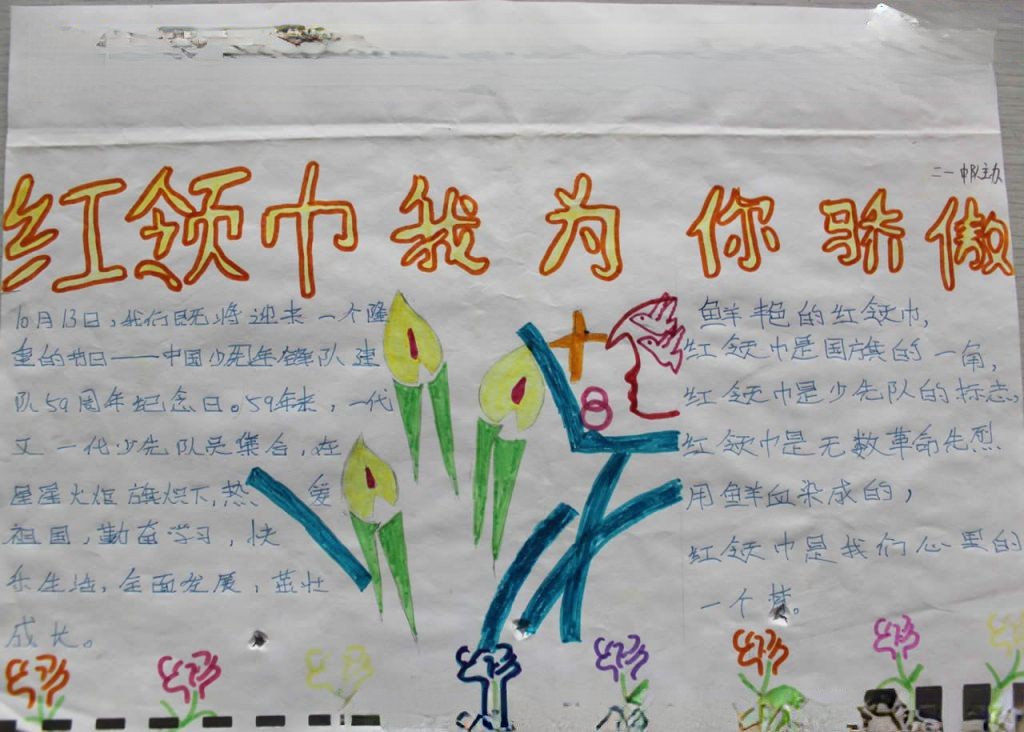 二一中队主办
红领巾我为你骄傲
10月13日，我们既将迎来一个隆
重的节日——中国少先年锋队建
队59周年纪念日。59年来，一代
又一代少先队员集合，在
星星火炬旗炽下，热爱
祖国，勤奋学习，快
乐生活，全面发展，茁壮
成长。
鲜艳的红领巾，
红领巾是国旗的一角，
红领巾是少先队的标志，
红领巾是无数革命先烈
用鲜血染成的，
红领巾是我们心里的
一个梦。